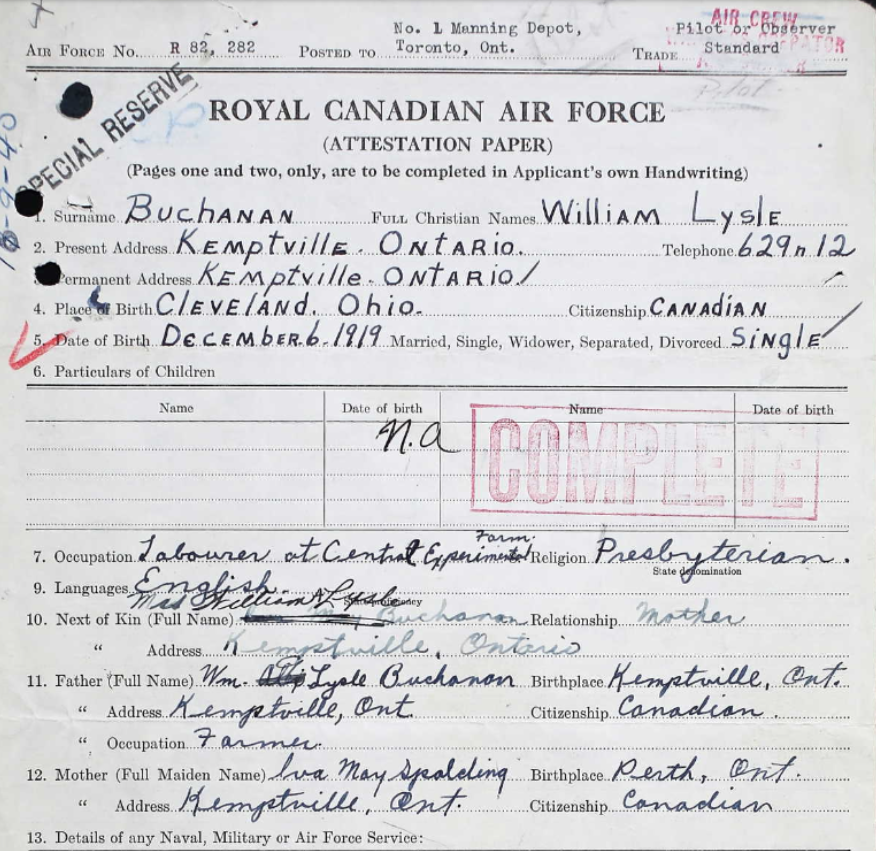 No. 1 Manning Depot,
Pilot or Observer
AIR CREW
AIR FORCE No. R 82, 282 POSTED TO Toronto, Ont. TRADE Standard
Pilot
SPECIAL RESERVE
ROYAL CANADIAN AIR FORCE
(ATTESTATION PAPER)
(Pages one and two, only, are to be completed in Applicant's own Handwriting)
1. Surname BUCHANAN FULL Christian Names WILLIAM LYSLE
2. Present Address KEMPTVILLE. ONTARIO. Telephone 629 n 12
3. Permanent Address KEMPTVILLE. ONTARIO
4. Place of Birth CLEVELAND. OHIO. Citizenship CANADIAN
5. Date of Birth DECEMBER. 6. 1919 Married, Single, Widower, Separated, Divorced SINGLE
6. Particulars of Children
Name Date of birth Name Date of birth
n.a
COMPLETE
7. Occupation Labourer at Central Experimental Farm. Religion Presbyterian.
State denomination
9. Languages English
Mrs William Lysle
10. Next of Kin (Full Name) Buchanan Relationship Mother
" Address Kemptville, Ontario
11. Father (Full Name) Wm. Lysle Buchanan Birthplace Kemptville, Ont.
" Address Kemptville, Ont. Citizenship Canadian.
" Occupation Farmer.
12. Mother (Full Maiden Name) Iva May Spalding Birthplace Perth, Ont.
" Address Kemptville, Ont. Citizenship Canadian
13. Details of any Naval, Military or Air Force Service: